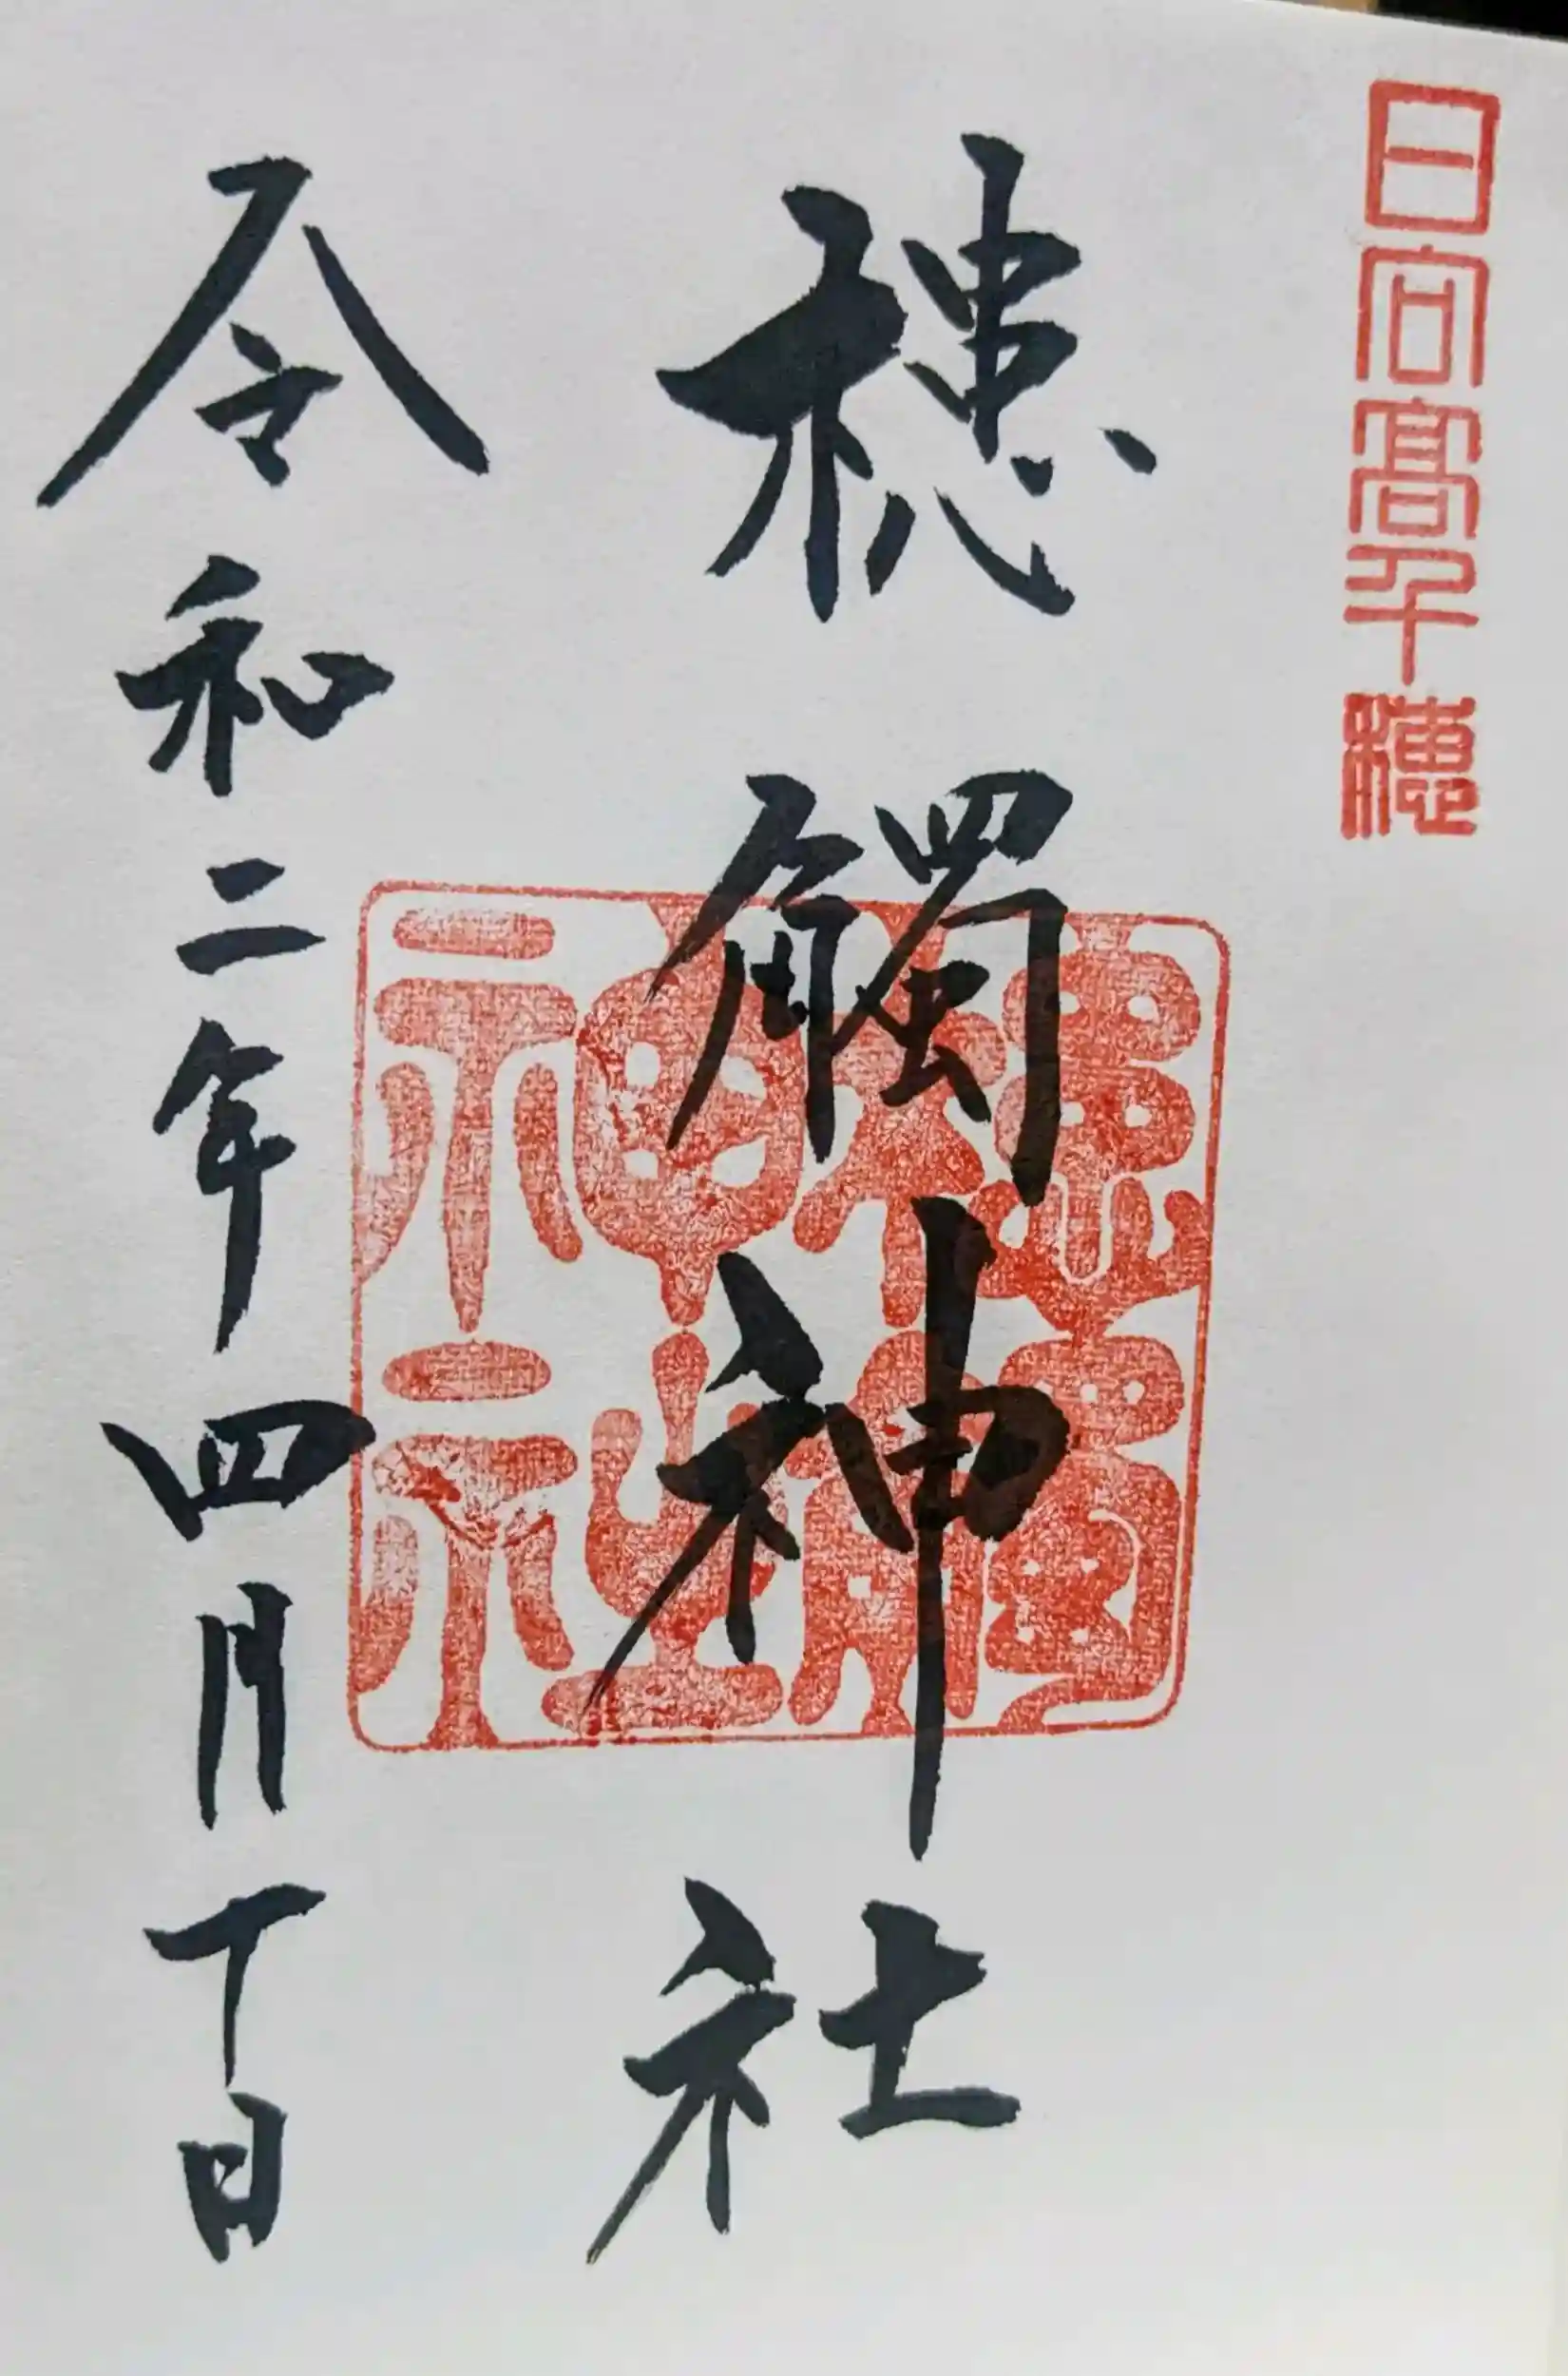 日向高千穂
穂觸神社
穂觸神社
令和二年四月十日